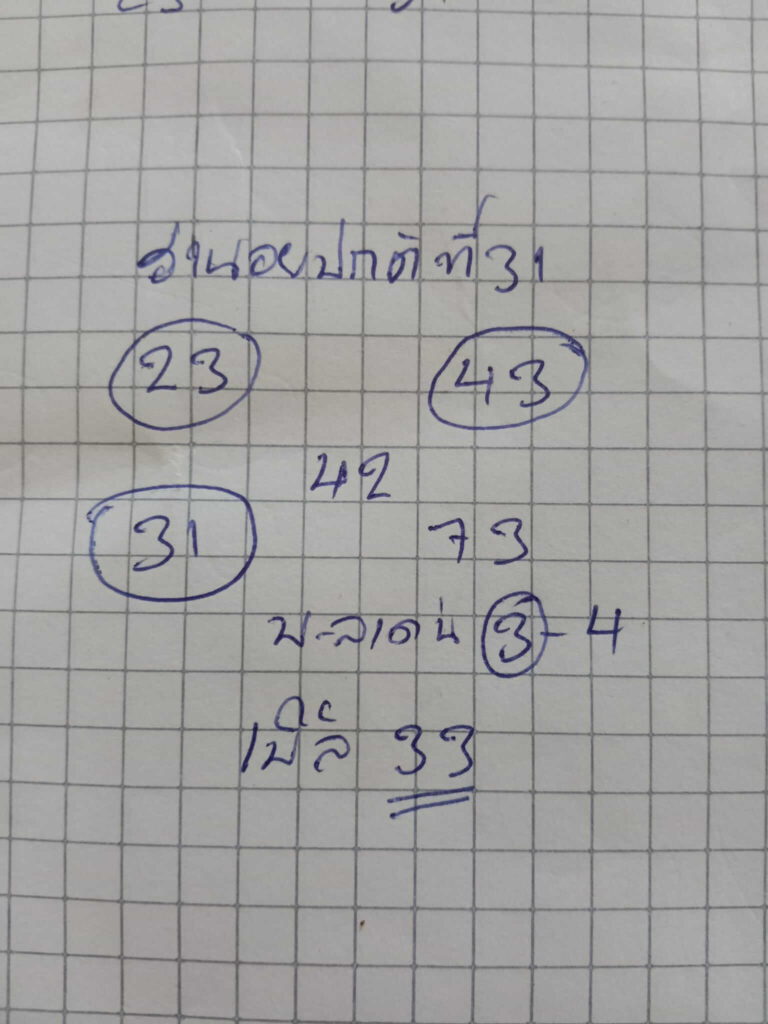 ฮานอยปกติที่31
23 43
42
31
73
พ-ลาดน 3-4
เบิ้ล 33